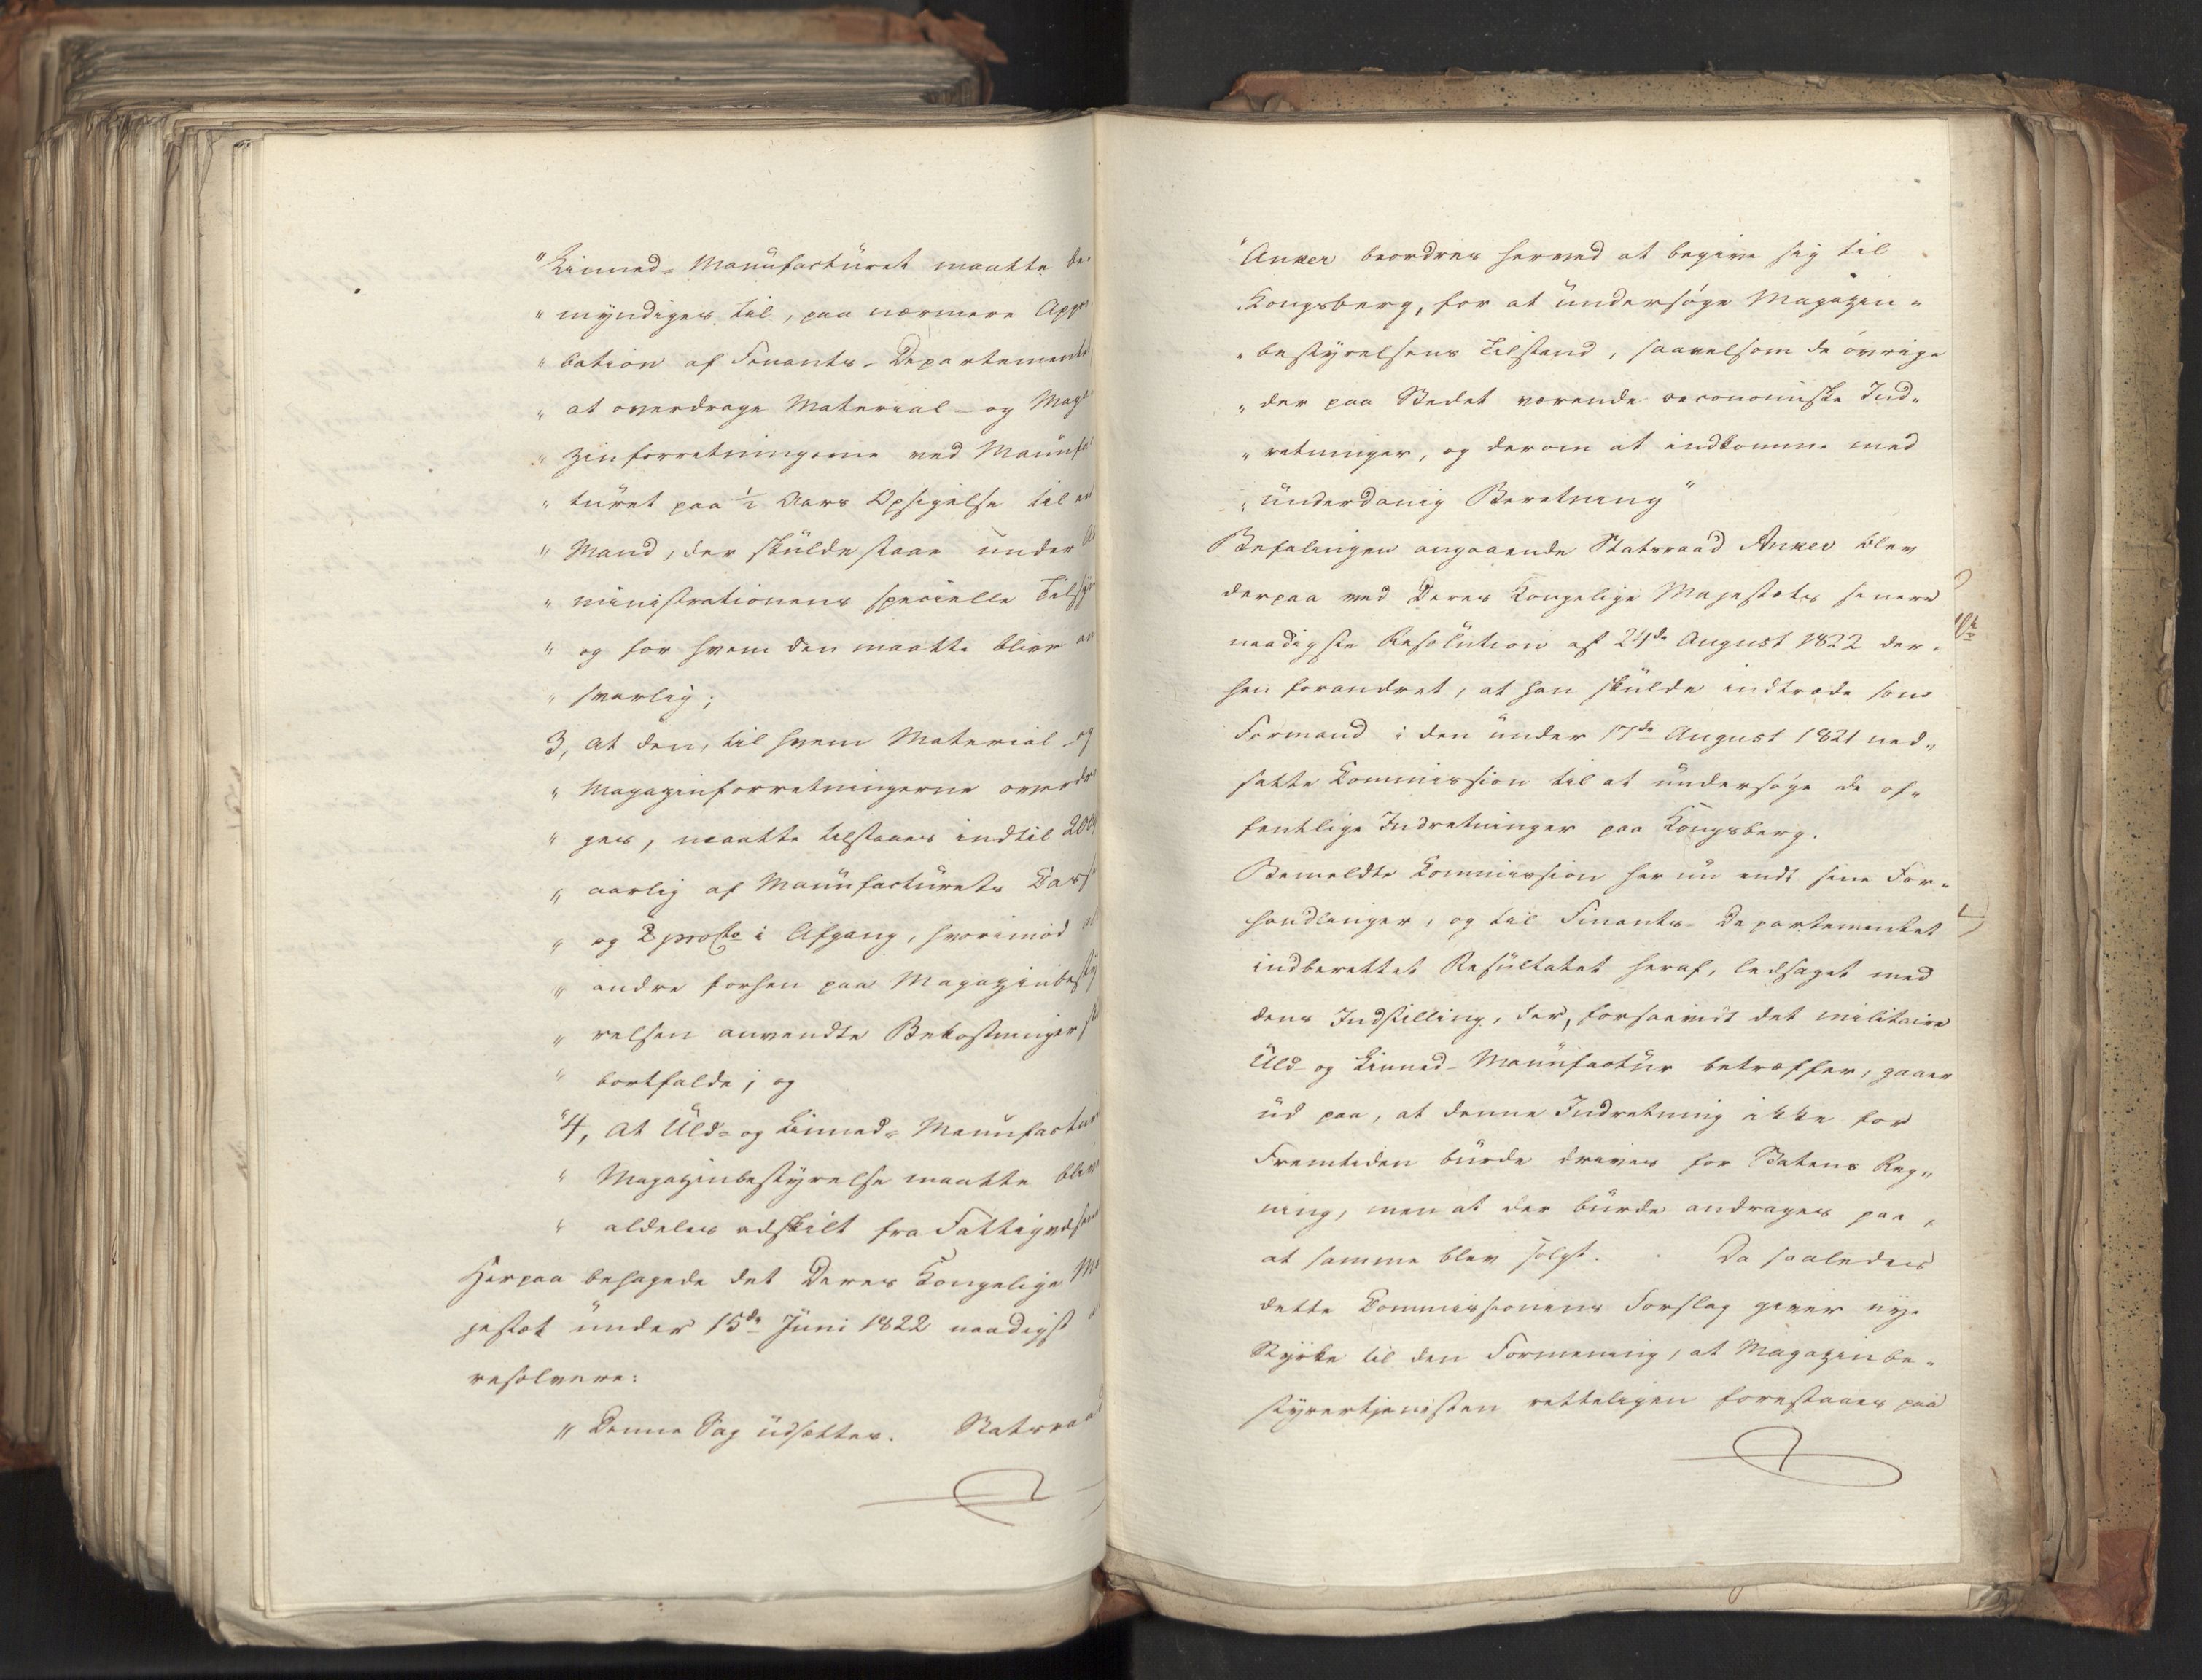 "Linned-Manufacturet maatte be-
"myndiges til, paa nærmere Appro-
"bation af Finants-Departementet
"at overdrage Material- og Maga-
"zinforretningerne ved Manufac-
"turet paa ½ Aars Opsigelse til en
"Mand, der skulde staae under Ad-
"ministrationens specielle Tilsyn
"og for hvem den maatte blive an-
"svarlig;
3, at den, til hvem Material- og
"Magazinforretningerne overdra-
"ges, maatte tilstaaes indtil 200
"aarlig af Manufacturets Casse
"og 2 procto i Afgang, hvorimod
"andre forhen paa Magazinbesty-
"relsen anvendte Bekostninger
"bortfalde; og
"4, at Uld- og Linned-Manufactur
"Magazinbestyrelse maatte blive
"aldeles adskilt fra Fattigvæsenet
Herpaa behagede det Deres Kongelige Ma-
jestæt under 15de Juni 1822 naadigst
resolvere:
"Denne Sag udsættes. Statsraad
"Anker beordres herved at begive sig til
"Kongsberg, for at undersøge Magazin-
"bestyrelsens Tilstand, saavelsom de øvrige
"der paa Stedet værende oeconomiske Ind-
"retninger, og derom at indkomme med
"underdanig Beretning"
Befalingen angaaende Statsraad Anker blev
derpaa ved Deres Kongelige Majestæts senere
naadigste Resolution af 24de August 1822 der-
hen forandret, at han skulde indtræde som
Formand i den under 17de August 1821 ned-
satte Commission til at undersøge de of-
fentlige Indretninger paa Kongsberg.
Bemeldte Commission har nu endt sine For-
handlinger, og til Finants-Departementet
indberettet Resultatet heraf, ledsaget med
dens Indstilling, der, forsaavidt det militaire
Uld- og Linned-Manufactur betræffer, gaaer
ud paa, at denne Indretning ikke for
Fremtiden burde drives for Statens Reg-
ning, men at der burde andrages paa,
at samme blev solgt. Da saaledes
dette Commissionens Forslag giver nye
Styrke til den Formening, at Magazinbe-
styrertjenesten retteligen forestaaes paa